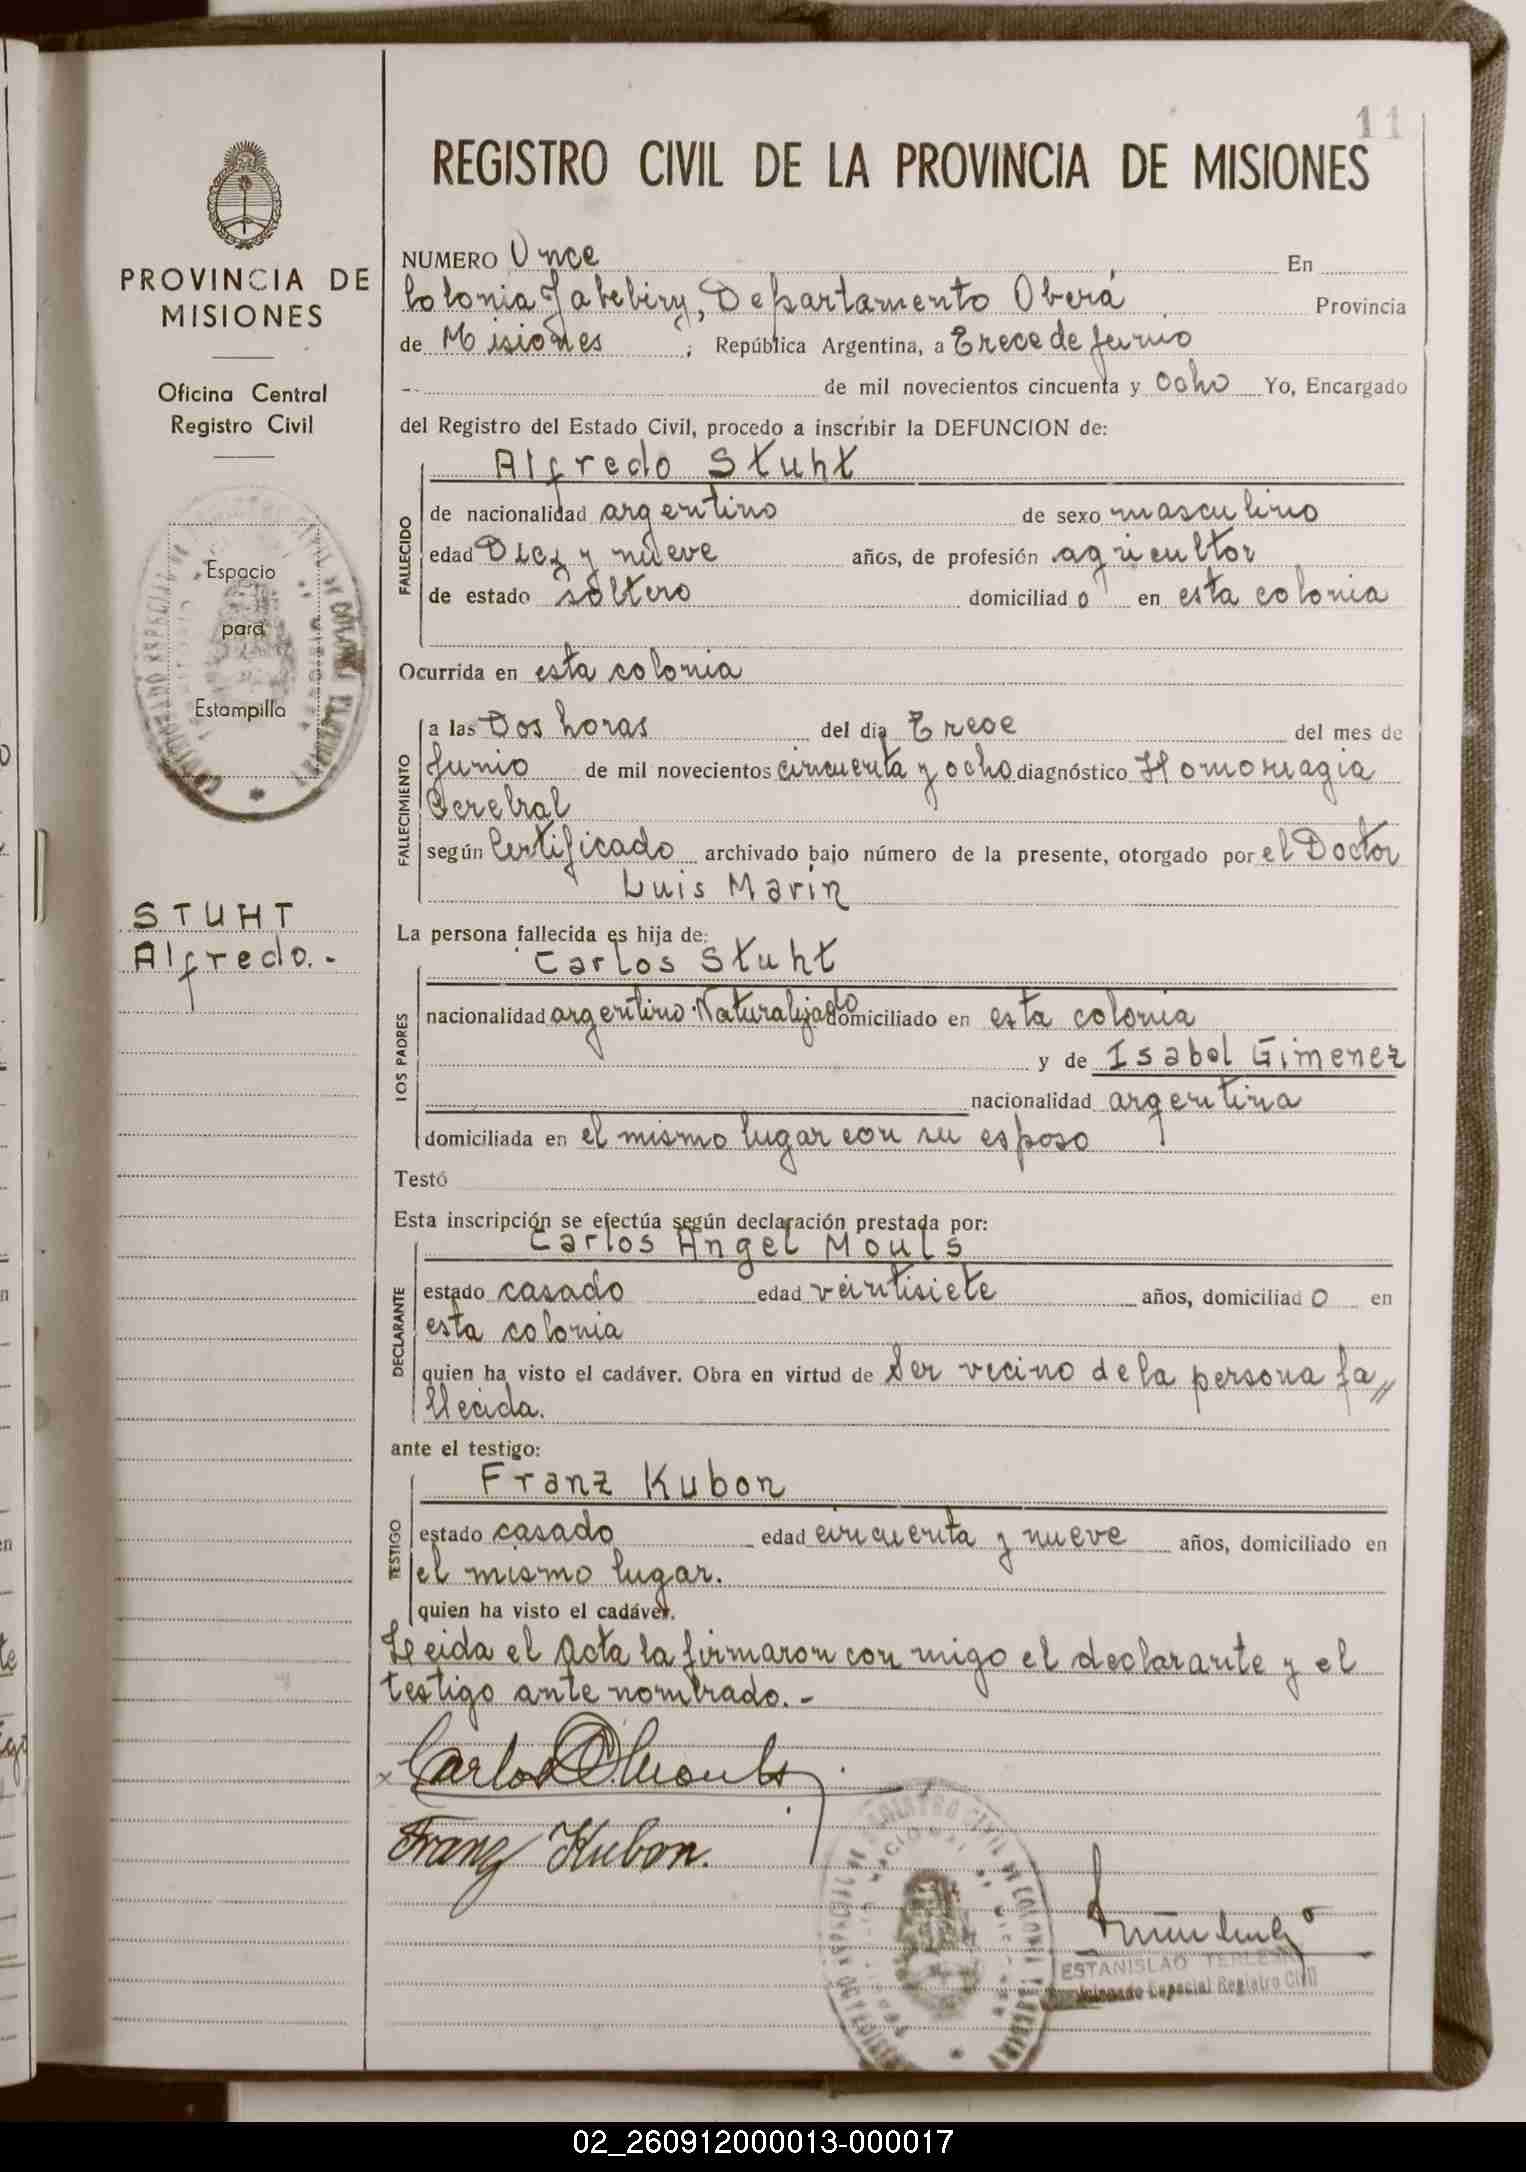 11
REGISTRO CIVIL DE LA PROVINCIA DE MISIONES
PROVINCIA DE
MISIONES
Oficina Central
Registro Civil
Espacio
para
Estampilla
STUHT
Alfredo.-
NUMERO Once En
Colonia Yabebiry, Departamento Oberá Provincia
de Misiones ; República Argentina, a Trece de junio
de mil novecientos cincuenta y ocho Yo, Encargado
del Registro del Estado Civil, procedo a inscribir la DEFUNCION de:
Alfredo Stuht
FALLECIDO
de nacionalidad argentino de sexo masculino
edad Diez y nueve años, de profesión agricultor
de estado soltero domiciliado en esta colonia
Ocurrida en esta colonia
FALLECIMIENTO
a las Dos horas del día Trece del mes de
Junio de mil novecientos cincuenta y ocho diagnóstico Homorragia
Cerebral
según Certificado archivado bajo número de la presente, otorgado por el Doctor
Luis Marin
La persona fallecida es hija de:
Carlos Stuht
LOS PADRES
nacionalidad argentino Naturalizado domiciliado en esta colonia
y de Isabel Gimenez
nacionalidad argentina
domiciliada en el mismo lugar con su esposo
Testó
Esta inscripción se efectúa según declaración prestada por:
Carlos Angel Mouls
DECLARANTE
estado casado edad veintisiete años, domiciliado en
esta colonia
quien ha visto el cadáver. Obra en virtud de Ser vecino de la persona fa//
llecida.
ante el testigo:
Franz Kubon
TESTIGO
estado casado edad cincuenta y nueve años, domiciliado en
el mismo lugar.
quien ha visto el cadáver.
Leeida el Acta la firmaron con migo el declarante y el
testigo ante nombrado.-
Carlos A. Mouls
Franz Kubon.
ESTANISLAO
Especial Registro Civil
02_260912000013-000017